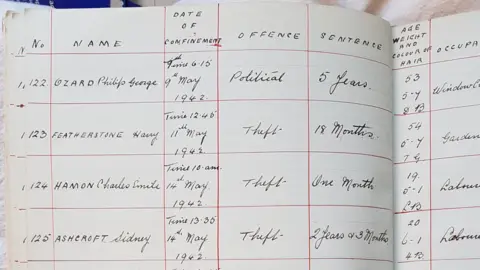 No NAME DATE OF CONFINEMENT OFFENCE SENTENCE AGE WEIGHT AND COLOUR OF HAIR OCCUPA
1,122 OZARD Philip George Time 6-15 9th May 1942 Political 5 Years. 53 5-7 Window
1,123 FEATHERSTONE Harry Time 12-45 11th May 1942 Theft 18 Months. 54 5-7 Garden
1,124 HAMON Charles Emile Time 10 am 14th May 1942 Theft One Month 19. 5-1 Labour
1,125 ASHCROFT Sidney Time 13-35 14th May 1942 Theft 2 Years & 3 Months 20 6-1 Laboure